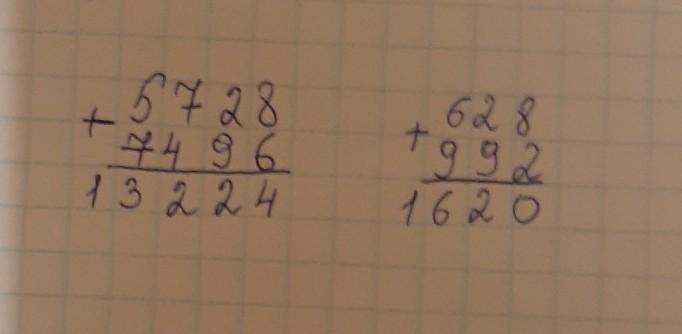 + 5728
7496
13224
+ 628
992
1620